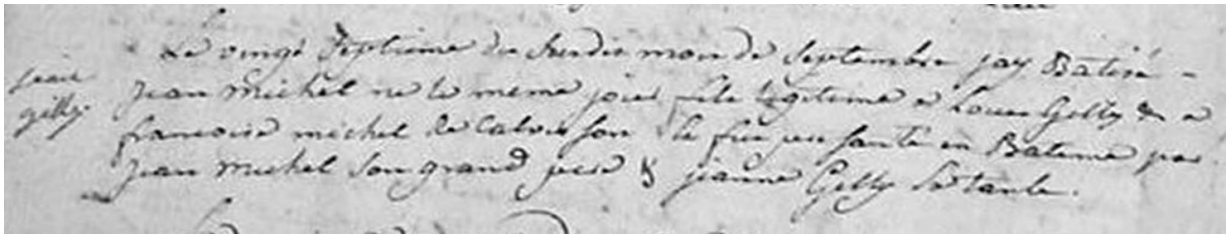 Le vingt septieme du susdit mois de septembre jay Batisé -
jean Michel né le meme jour fils legitime a Louis Gelly & a
francoise michel de Calvisson le fut presenté en Bateme par
jean michel son grand pere & jeanne Gelly sa tante.
jean
gelly